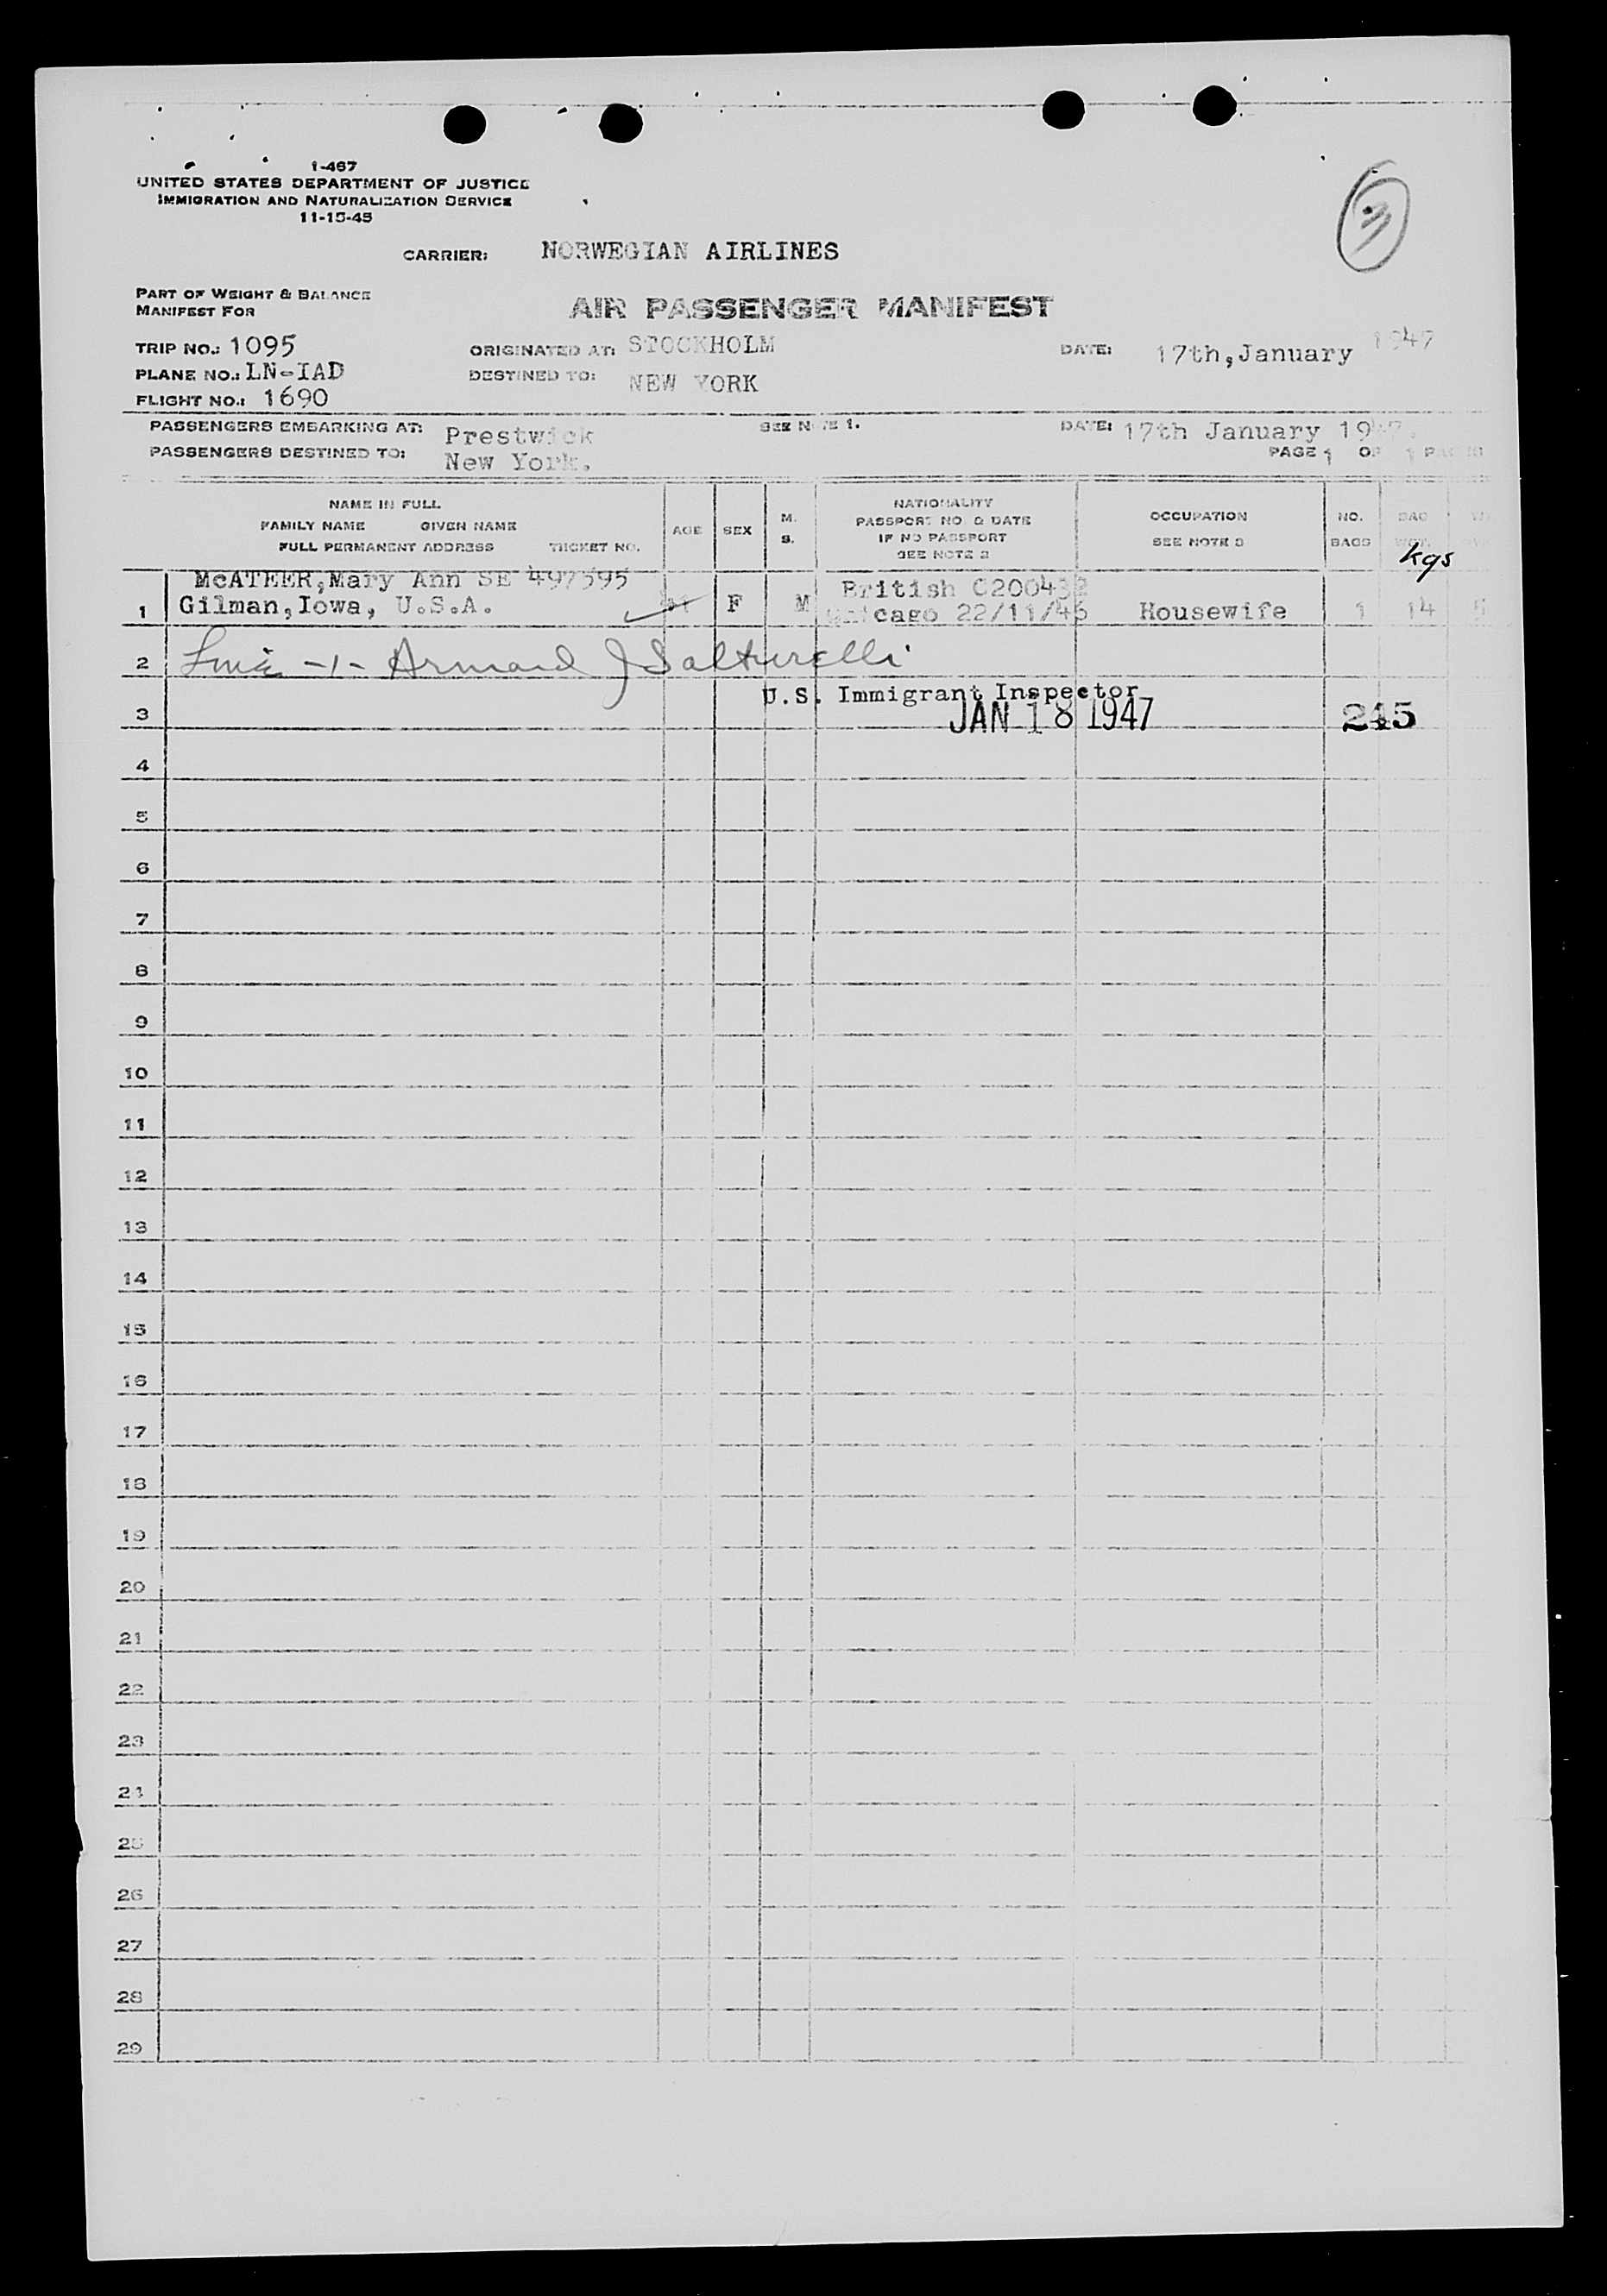 I-467
UNITED STATES DEPARTMENT OF JUSTICE
IMMIGRATION AND NATURALIZATION SERVICE
11-15-45
3
CARRIER: NORWEGIAN AIRLINES
PART OF WEIGHT & BALANCE
MANIFEST FOR
AIR PASSENGER MANIFEST
TRIP NO.: 1095 ORIGINATED AT: STOCKHOLM DATE: 17th, January 1947
PLANE NO.: LN-IAD DESTINED TO: NEW YORK
FLIGHT NO.: 1690
PASSENGERS EMBARKING AT: Prestwick SEE NOTE 1. DATE: 17th January 1947.
PASSENGERS DESTINED TO: New York. PAGE 1 OF 1
NAME IN FULL
FAMILY NAME GIVEN NAME
FULL PERMANENT ADDRESS TICKET NO.
AGE SEX M. S.
NATIONALITY
PASSPORT NO. & DATE
IF NO PASSPORT
SEE NOTE 2
OCCUPATION
SEE NOTE 3
NO. BAGS
BAG WGT.
kgs
McATEER, Mary Ann SE 497595 British C200432
1 Gilman, Iowa, U.S.A. F M Chicago 22/11/46 Housewife 1 14
2 Line -1- Armand J Salturelli
U.S. Immigrant Inspector
3 JAN 18 1947 245
4
5
6
7
8
9
10
11
12
13
14
15
16
17
18
19
20
21
22
23
24
25
26
27
28
29